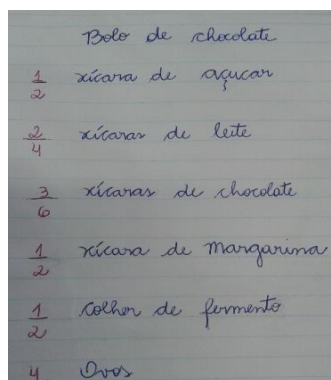 Bolo de chocolate
1/2 xícara de açucar
2/4 xícaras de leite
3/6 xícaras de chocolate
1/2 xícara de margarina
1/2 colher de fermento
4 Ovos